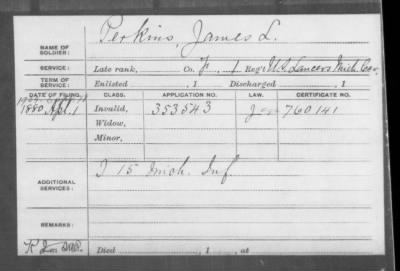 NAME OF SOLDIER: Perkins, James L.
SERVICE: Late rank, Co. F, 1 Reg't U.S. Lancers Mich Cav.
TERM OF SERVICE: Enlisted , 1 Discharged , 1
DATE OF FILING. CLASS. APPLICATION NO. LAW. CERTIFICATE NO.
1880, Apl. 1 Invalid, 353543 760141
Widow,
Minor,
ADDITIONAL SERVICES: I 15 Mich. Inf
REMARKS:
Died , 1 , at